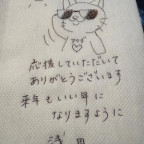 応援していただいて
ありがとうございます
来年もいい年に
なりますように
浅田